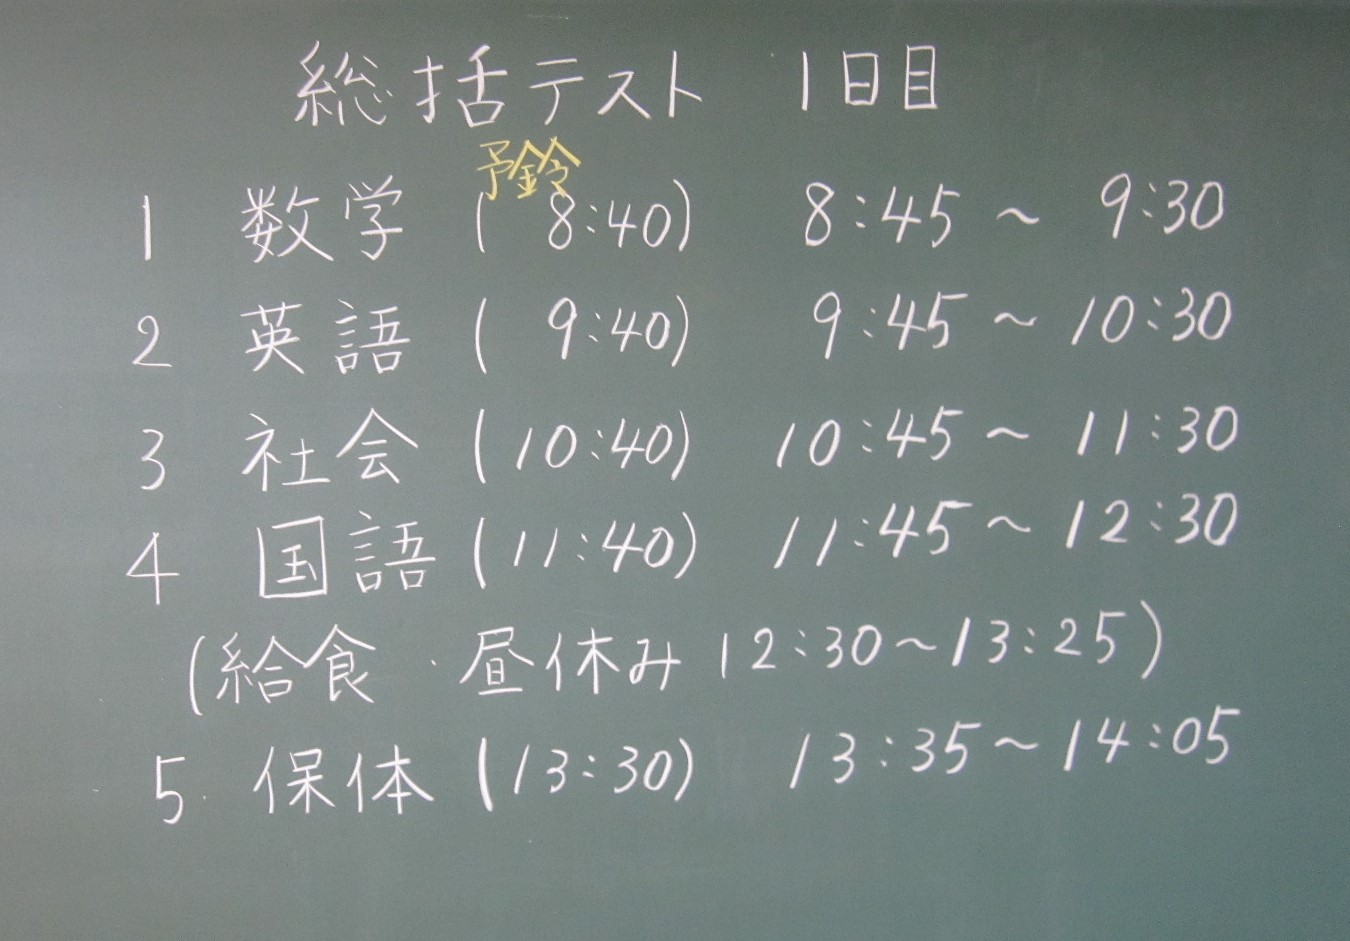 総括テスト 1日目
予鈴
1 数学 ( 8:40) 8:45 ～ 9:30
2 英語 ( 9:40) 9:45 ～ 10:30
3 社会 (10:40) 10:45 ～ 11:30
4 国語 (11:40) 11:45 ～ 12:30
(給食・昼休み 12:30～13:25)
5 保体 (13:30) 13:35～14:05